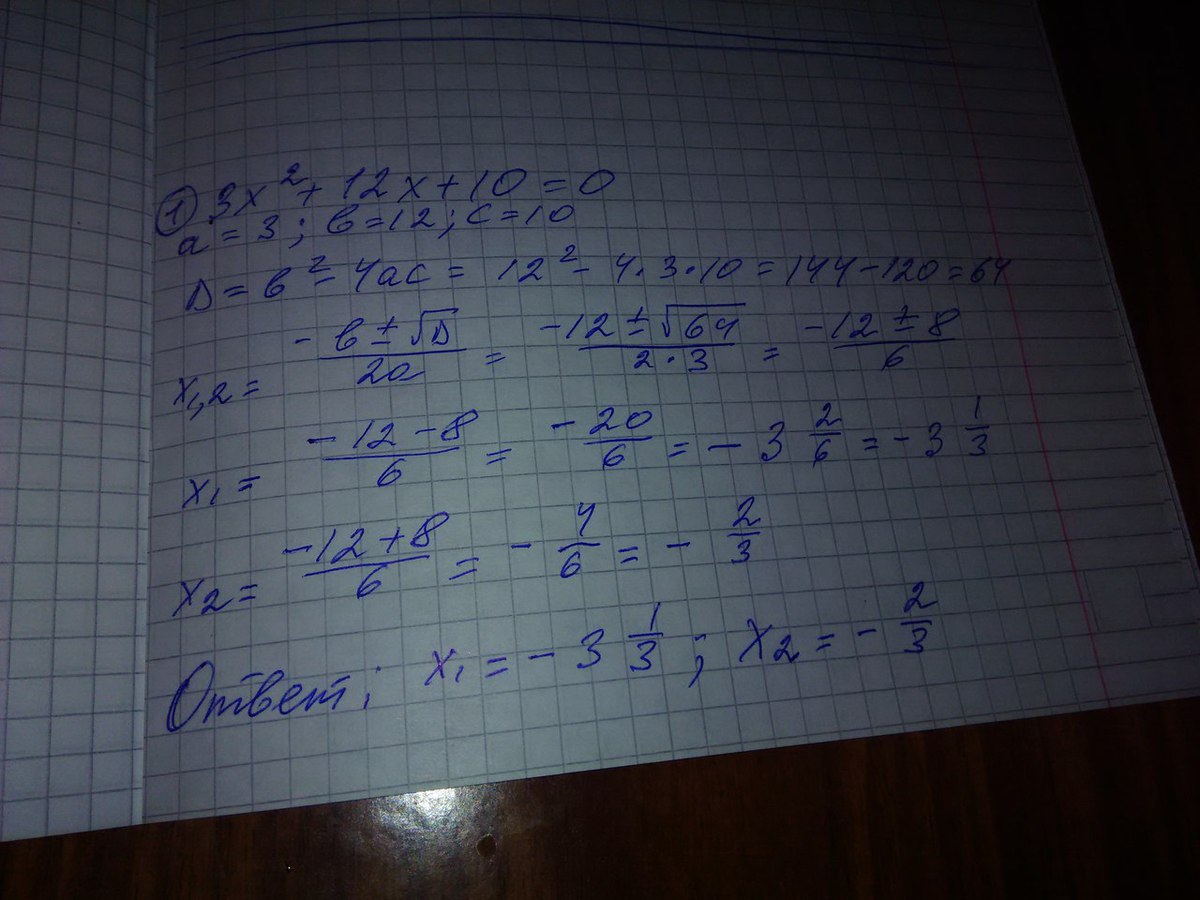 ① 3x² + 12x + 10 = 0
a = 3; b = 12; c = 10
D = b² - 4ac = 12² - 4·3·10 = 144 - 120 = 64
x₁,₂ = (-b ± √D)/(2a) = (-12 ± √64)/(2·3) = (-12 ± 8)/6
x₁ = (-12 - 8)/6 = -20/6 = -3 2/6 = -3 1/3
x₂ = (-12 + 8)/6 = -4/6 = -2/3
Ответ: x₁ = -3 1/3; x₂ = -2/3